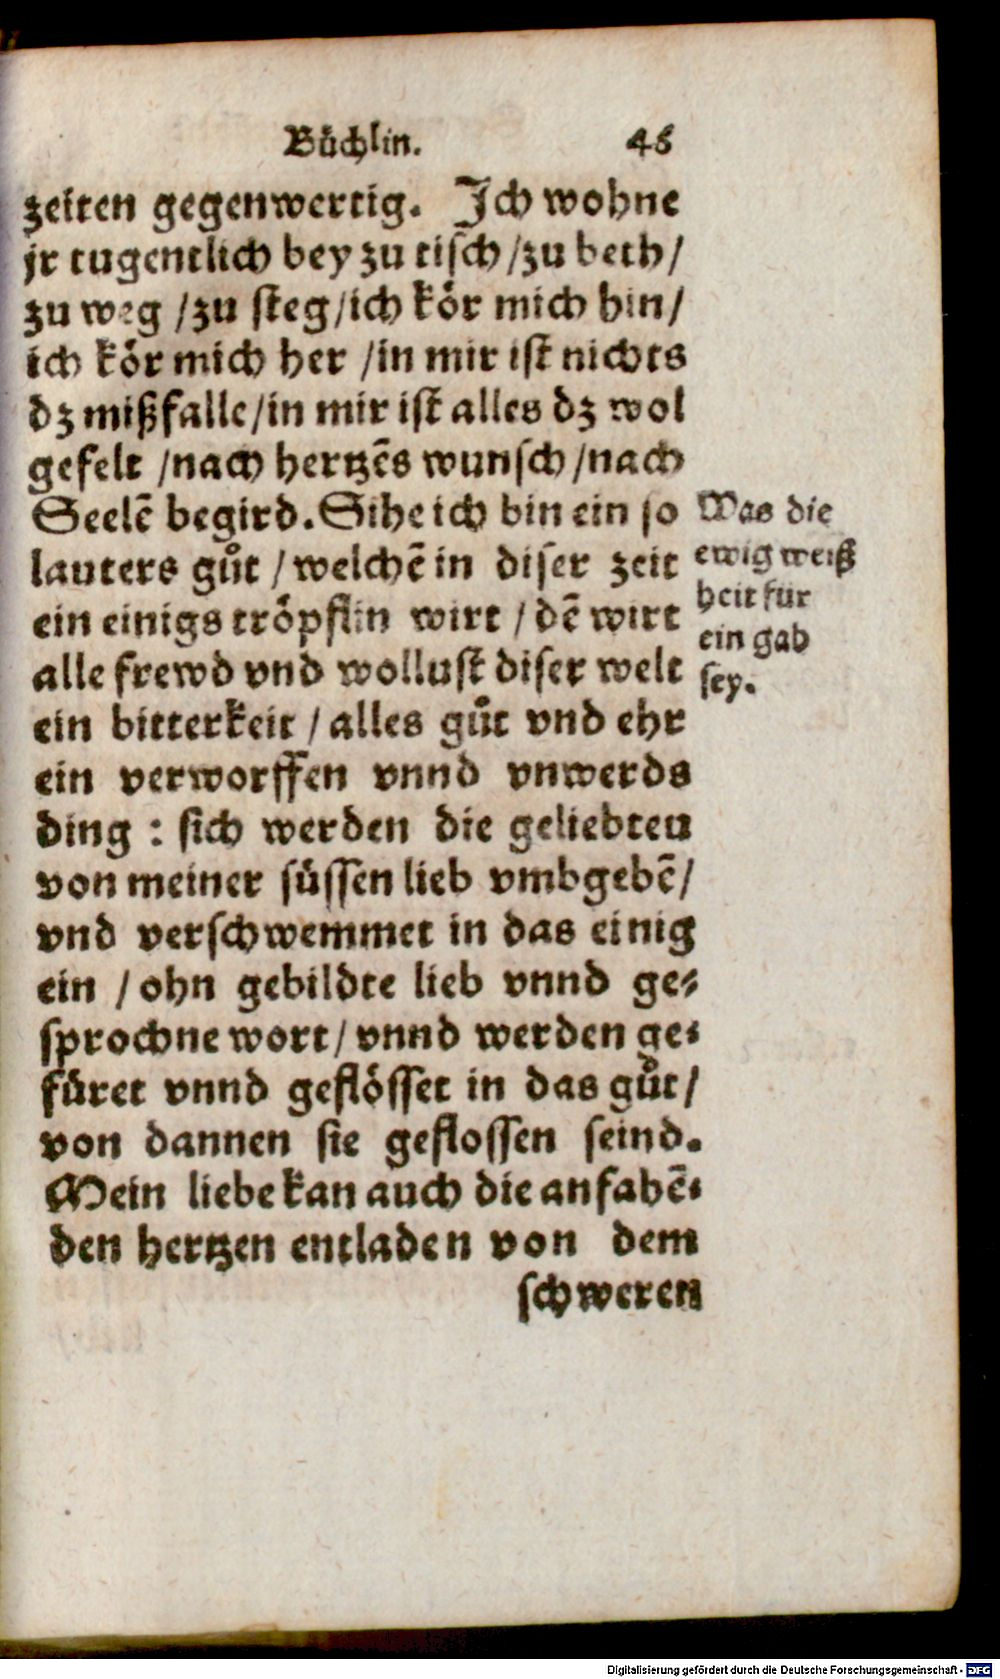 Bůchlin. 46
zeiten gegenwertig. Ich wohne
jr tugentlich bey zu tisch / zu beth /
zu weg / zu steg / ich kör mich hin /
ich kör mich her / in mir ist nichts
dz mißfalle / in mir ist alles dz wol
gefelt / nach hertzēs wunsch / nach
Seelē begird. Sihe ich bin ein so
lauters gůt / welchē in diser zeit
ein einigs tröpflin wirt / dē wirt
alle frewd vnd wollust diser welt
ein bitterkeit / alles gůt vnd ehr
ein verworffen vnnd vnwerds
ding : sich werden die geliebten
von meiner süssen lieb vmbgebē /
vnd verschwemmet in das einig
ein / ohn gebildte lieb vnnd ge-
sprochne wort / vnnd werden ge-
füret vnnd geflösset in das gůt /
von dannen sie geflossen seind.
Mein liebe kan auch die anfahē-
den hertzen entladen von dem
schweren
Was die
ewig weiß
heit für
ein gab
sey.
Digitalisierung gefördert durch die Deutsche Forschungsgemeinschaft - DFG